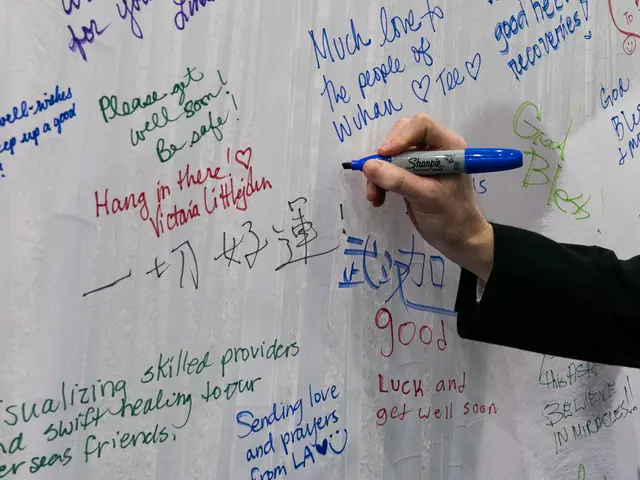 for you
well-wishes
ep up a good
!
Please get
well soon!
Be safe!
Much love to
the people of
Wuhan ♡ Tee ♡
good
recoveries!
Sharpie
God
Bless
God
Hang in there! ♡
Victoria
一切好運!
武汉加
good
LUCK and
get well soon
isualizing skilled providers
nd swift healing to our
erseas friends.
Sending love
and prayers
from LA ♥
BELIEVE
IN MIRACLES!!